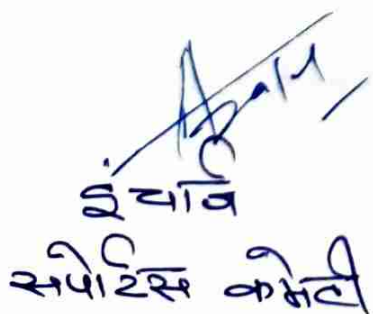 इंचार्ज
स्पोर्टस कमेटी